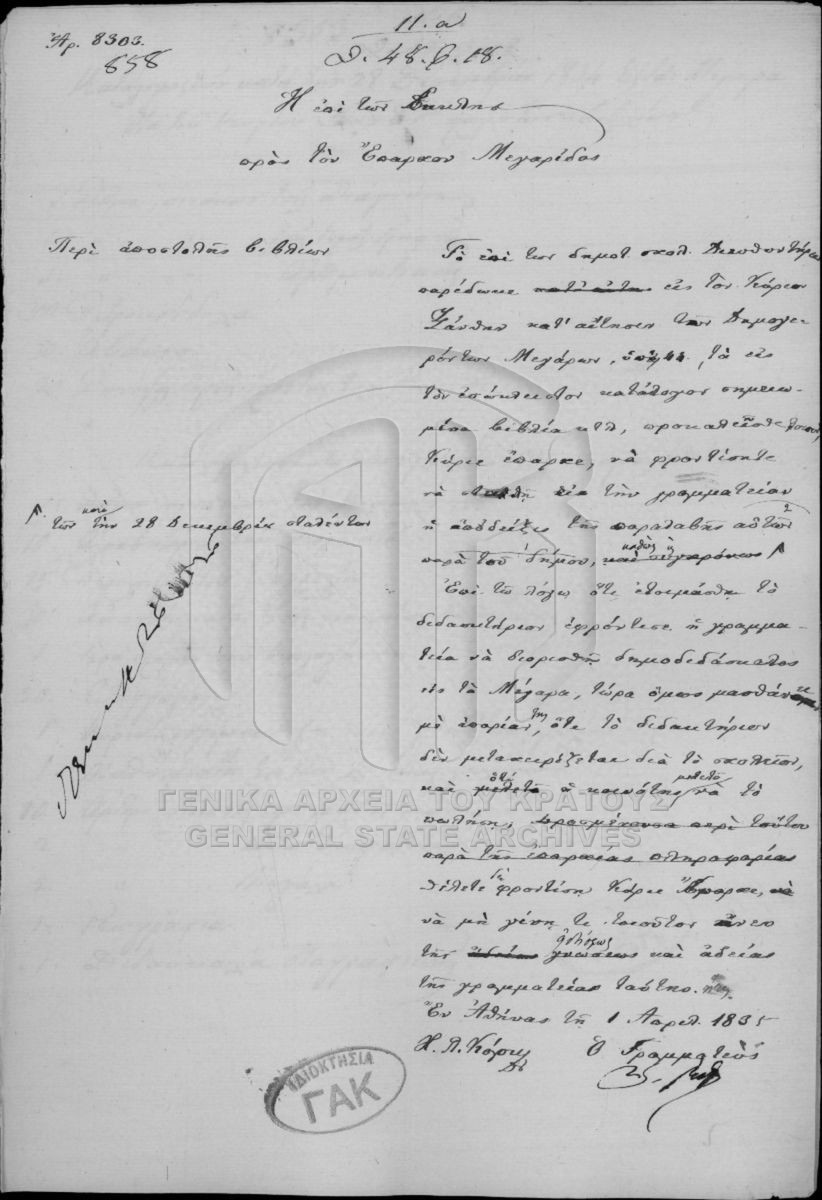 Ἀρ. 8303.
858
11.α
Θ. 48. β. 18.
Ἡ ἐπὶ τῶν Ἐκκλης
πρὸς τὸν Ἔπαρχον Μεγαρίδος
Περὶ ἀποστολῆς βιβλίων
Τὸ ἐπὶ τῶν δημοτ. σχολ. Διευθυντήριον
παρέδωκε εἰς τὸν Κύριον
Ξάνθην κατ' αἴτησιν τῶν Δημογε-
ρόντων Μεγάρων, τὰ εἰς
τὸν ἐσώκλειστον κατάλογον σημειω-
μένα βιβλία κτλ, προσκαλεῖσθε
Κύριε ἔπαρχε, νὰ φροντίσητε
νὰ εἰς τὴν γραμματείαν
ἡ ἀπόδειξις τῆς παραλαβῆς αὐτῶν
παρὰ τοῦ δήμου, καθὼς ἡ
τῶν κατὰ τὴν 28 Δεκεμβρίου σταλέντων
Ἐπὶ τῷ λόγῳ ὅτι ἑτοιμάσθη τὸ
διδακτήριον ἐφρόντισε ἡ γραμμα-
τεία νὰ διορισθῇ δημοδιδάσκαλος
εἰς τὰ Μέγαρα, τώρα ὅμως μανθάνει
μὲ ἀπορίαν της, ὅτι τὸ διδακτήριον
δὲν μεταχειρίζεται διὰ τὸ σχολεῖον,
καὶ ὅτι ἡ κοινότης μελετᾷ νὰ τὸ
πωλήσῃ, περὶ τούτου
παρὰ τῆς ἐπαρχίας πληροφορίας
θέλετε φροντίσῃ Κύριε Ἔπαρχε,
νὰ μὴ γένῃ τι τοιοῦτον ἄνευ
τῆς ἀδείας γνώσεως καὶ ἀδείας
τῆς γραμματείας ταύτης.
Ἐν Ἀθήναις τῇ 1 Απριλ. 1835
Ὁ Γραμματεὺς
ΓΕΝΙΚΑ ΑΡΧΕΙΑ ΤΟΥ ΚΡΑΤΟΥΣ
GENERAL STATE ARCHIVES
ΙΔΙΟΚΤΗΣΙΑ
ΓΑΚ